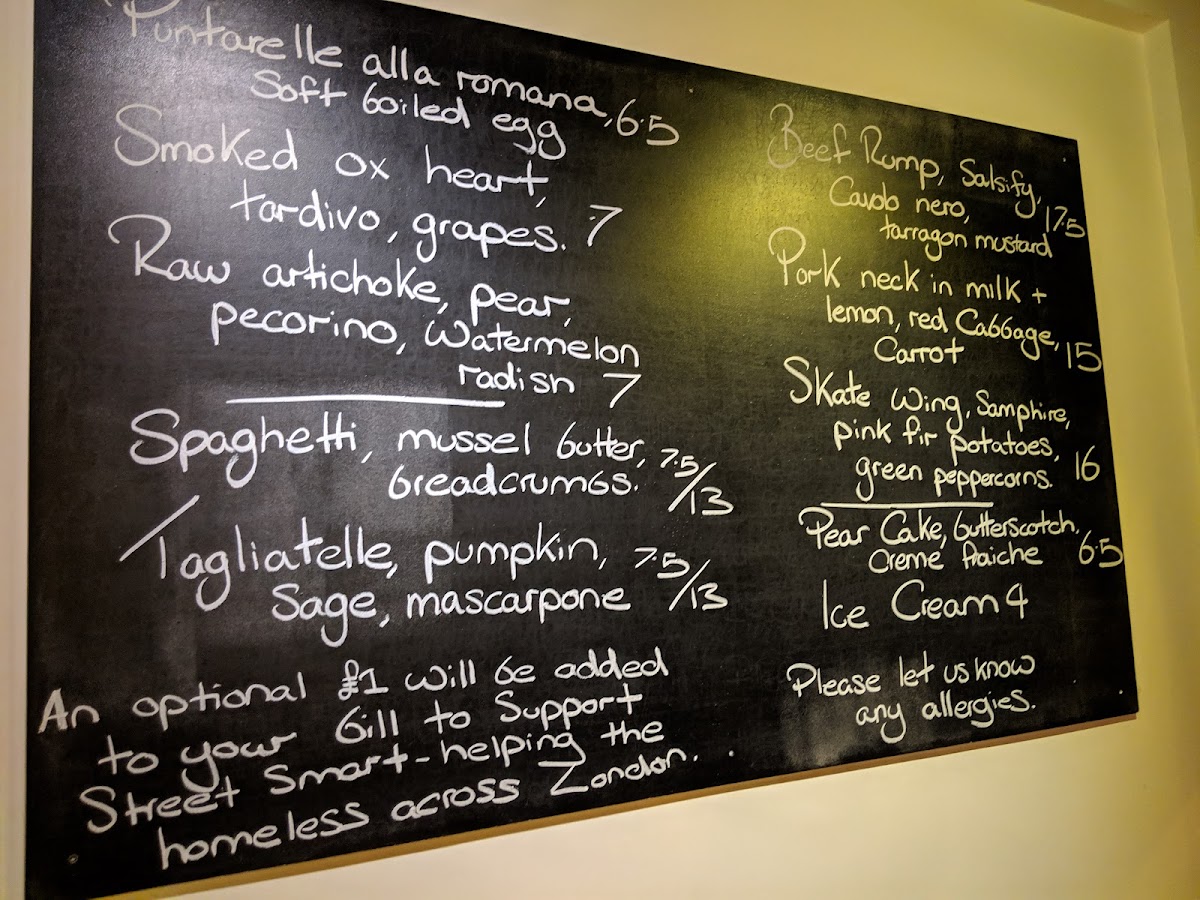 Puntarelle alla romana, 6.5
Soft boiled egg
Smoked ox heart,
tardivo, grapes. 7
Raw artichoke, pear,
pecorino, Watermelon
radish 7
Spaghetti, mussel butter, 7.5/13
breadcrumbs.
Tagliatelle, pumpkin, 7.5/13
Sage, mascarpone
An optional £1 will be added
to your bill to Support
Street Smart - helping the
homeless across London.
Beef Rump, Salsify,
Cavolo nero, 17.5
tarragon mustard
Pork neck in milk +
lemon, red Cabbage, 15
Carrot
Skate Wing, Samphire,
pink fir potatoes, 16
green peppercorns.
Pear Cake, butterscotch,
Creme fraiche 6.5
Ice Cream 4
Please let us know
any allergies.